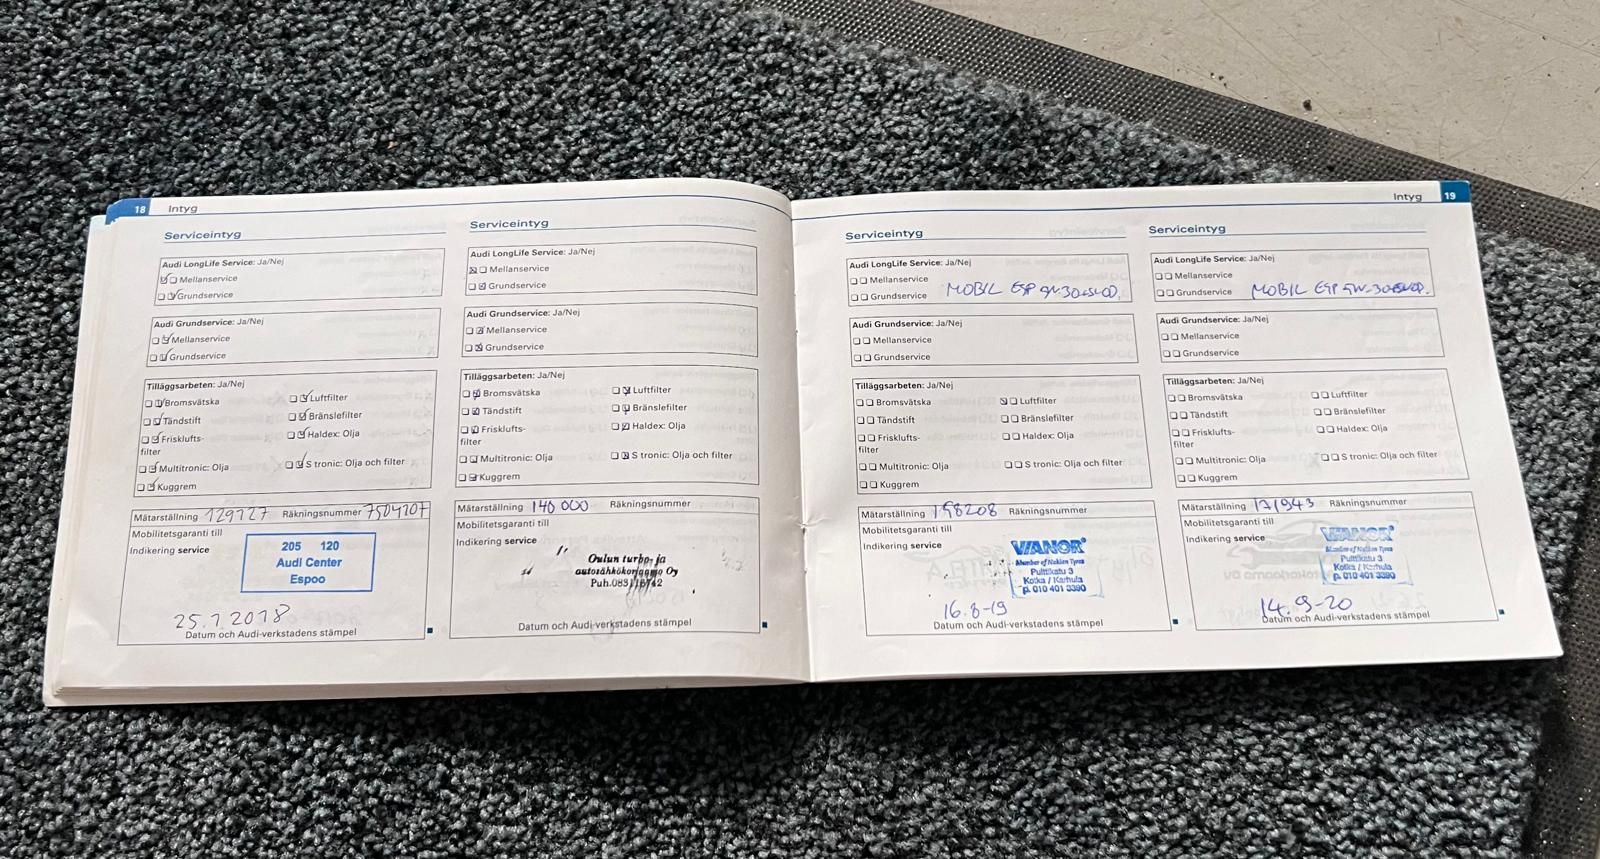 18 Intyg
Serviceintyg
Audi LongLife Service: Ja/Nej
Mellanservice
Grundservice
Audi Grundservice: Ja/Nej
Mellanservice
Grundservice
Tilläggsarbeten: Ja/Nej
Bromsvätska
Luftfilter
Tändstift
Bränslefilter
Frisklufts-
filter
Haldex: Olja
Multitronic: Olja
S tronic: Olja och filter
Kuggrem
Mätarställning 129727 Räkningsnummer 7504207
Mobilitetsgaranti till
Indikering service
205 120
Audi Center
Espoo
25.7.2018
Datum och Audi-verkstadens stämpel
Serviceintyg
Audi LongLife Service: Ja/Nej
Mellanservice
Grundservice
Audi Grundservice: Ja/Nej
Mellanservice
Grundservice
Tilläggsarbeten: Ja/Nej
Bromsvätska
Luftfilter
Tändstift
Bränslefilter
Frisklufts-
filter
Haldex: Olja
Multitronic: Olja
S tronic: Olja och filter
Kuggrem
Mätarställning 140 000 Räkningsnummer
Mobilitetsgaranti till
Indikering service
Oulun turbo- ja
autosähkökorjaamo Oy
Datum och Audi-verkstadens stämpel
Intyg 19
Serviceintyg
Audi LongLife Service: Ja/Nej
Mellanservice
Grundservice MOBIL ESP
Audi Grundservice: Ja/Nej
Mellanservice
Grundservice
Tilläggsarbeten: Ja/Nej
Bromsvätska
Luftfilter
Tändstift
Bränslefilter
Frisklufts-
filter
Haldex: Olja
Multitronic: Olja
S tronic: Olja och filter
Kuggrem
Mätarställning 158208 Räkningsnummer
Mobilitetsgaranti till
Indikering service
VIANOR
Member of Nokian Tyres
Pulttikatu 3
Kotka / Karhula
p. 010 401 3390
16.8-19
Datum och Audi-verkstadens stämpel
Serviceintyg
Audi LongLife Service: Ja/Nej
Mellanservice
Grundservice MOBIL ESP 5W-30
Audi Grundservice: Ja/Nej
Mellanservice
Grundservice
Tilläggsarbeten: Ja/Nej
Bromsvätska
Luftfilter
Tändstift
Bränslefilter
Frisklufts-
filter
Haldex: Olja
Multitronic: Olja
S tronic: Olja och filter
Kuggrem
Mätarställning 171943 Räkningsnummer
Mobilitetsgaranti till
Indikering service
VIANOR
Member of Nokian Tyres
Pulttikatu 3
Kotka / Karhula
p. 010 401 3390
14.9-20
Datum och Audi-verkstadens stämpel